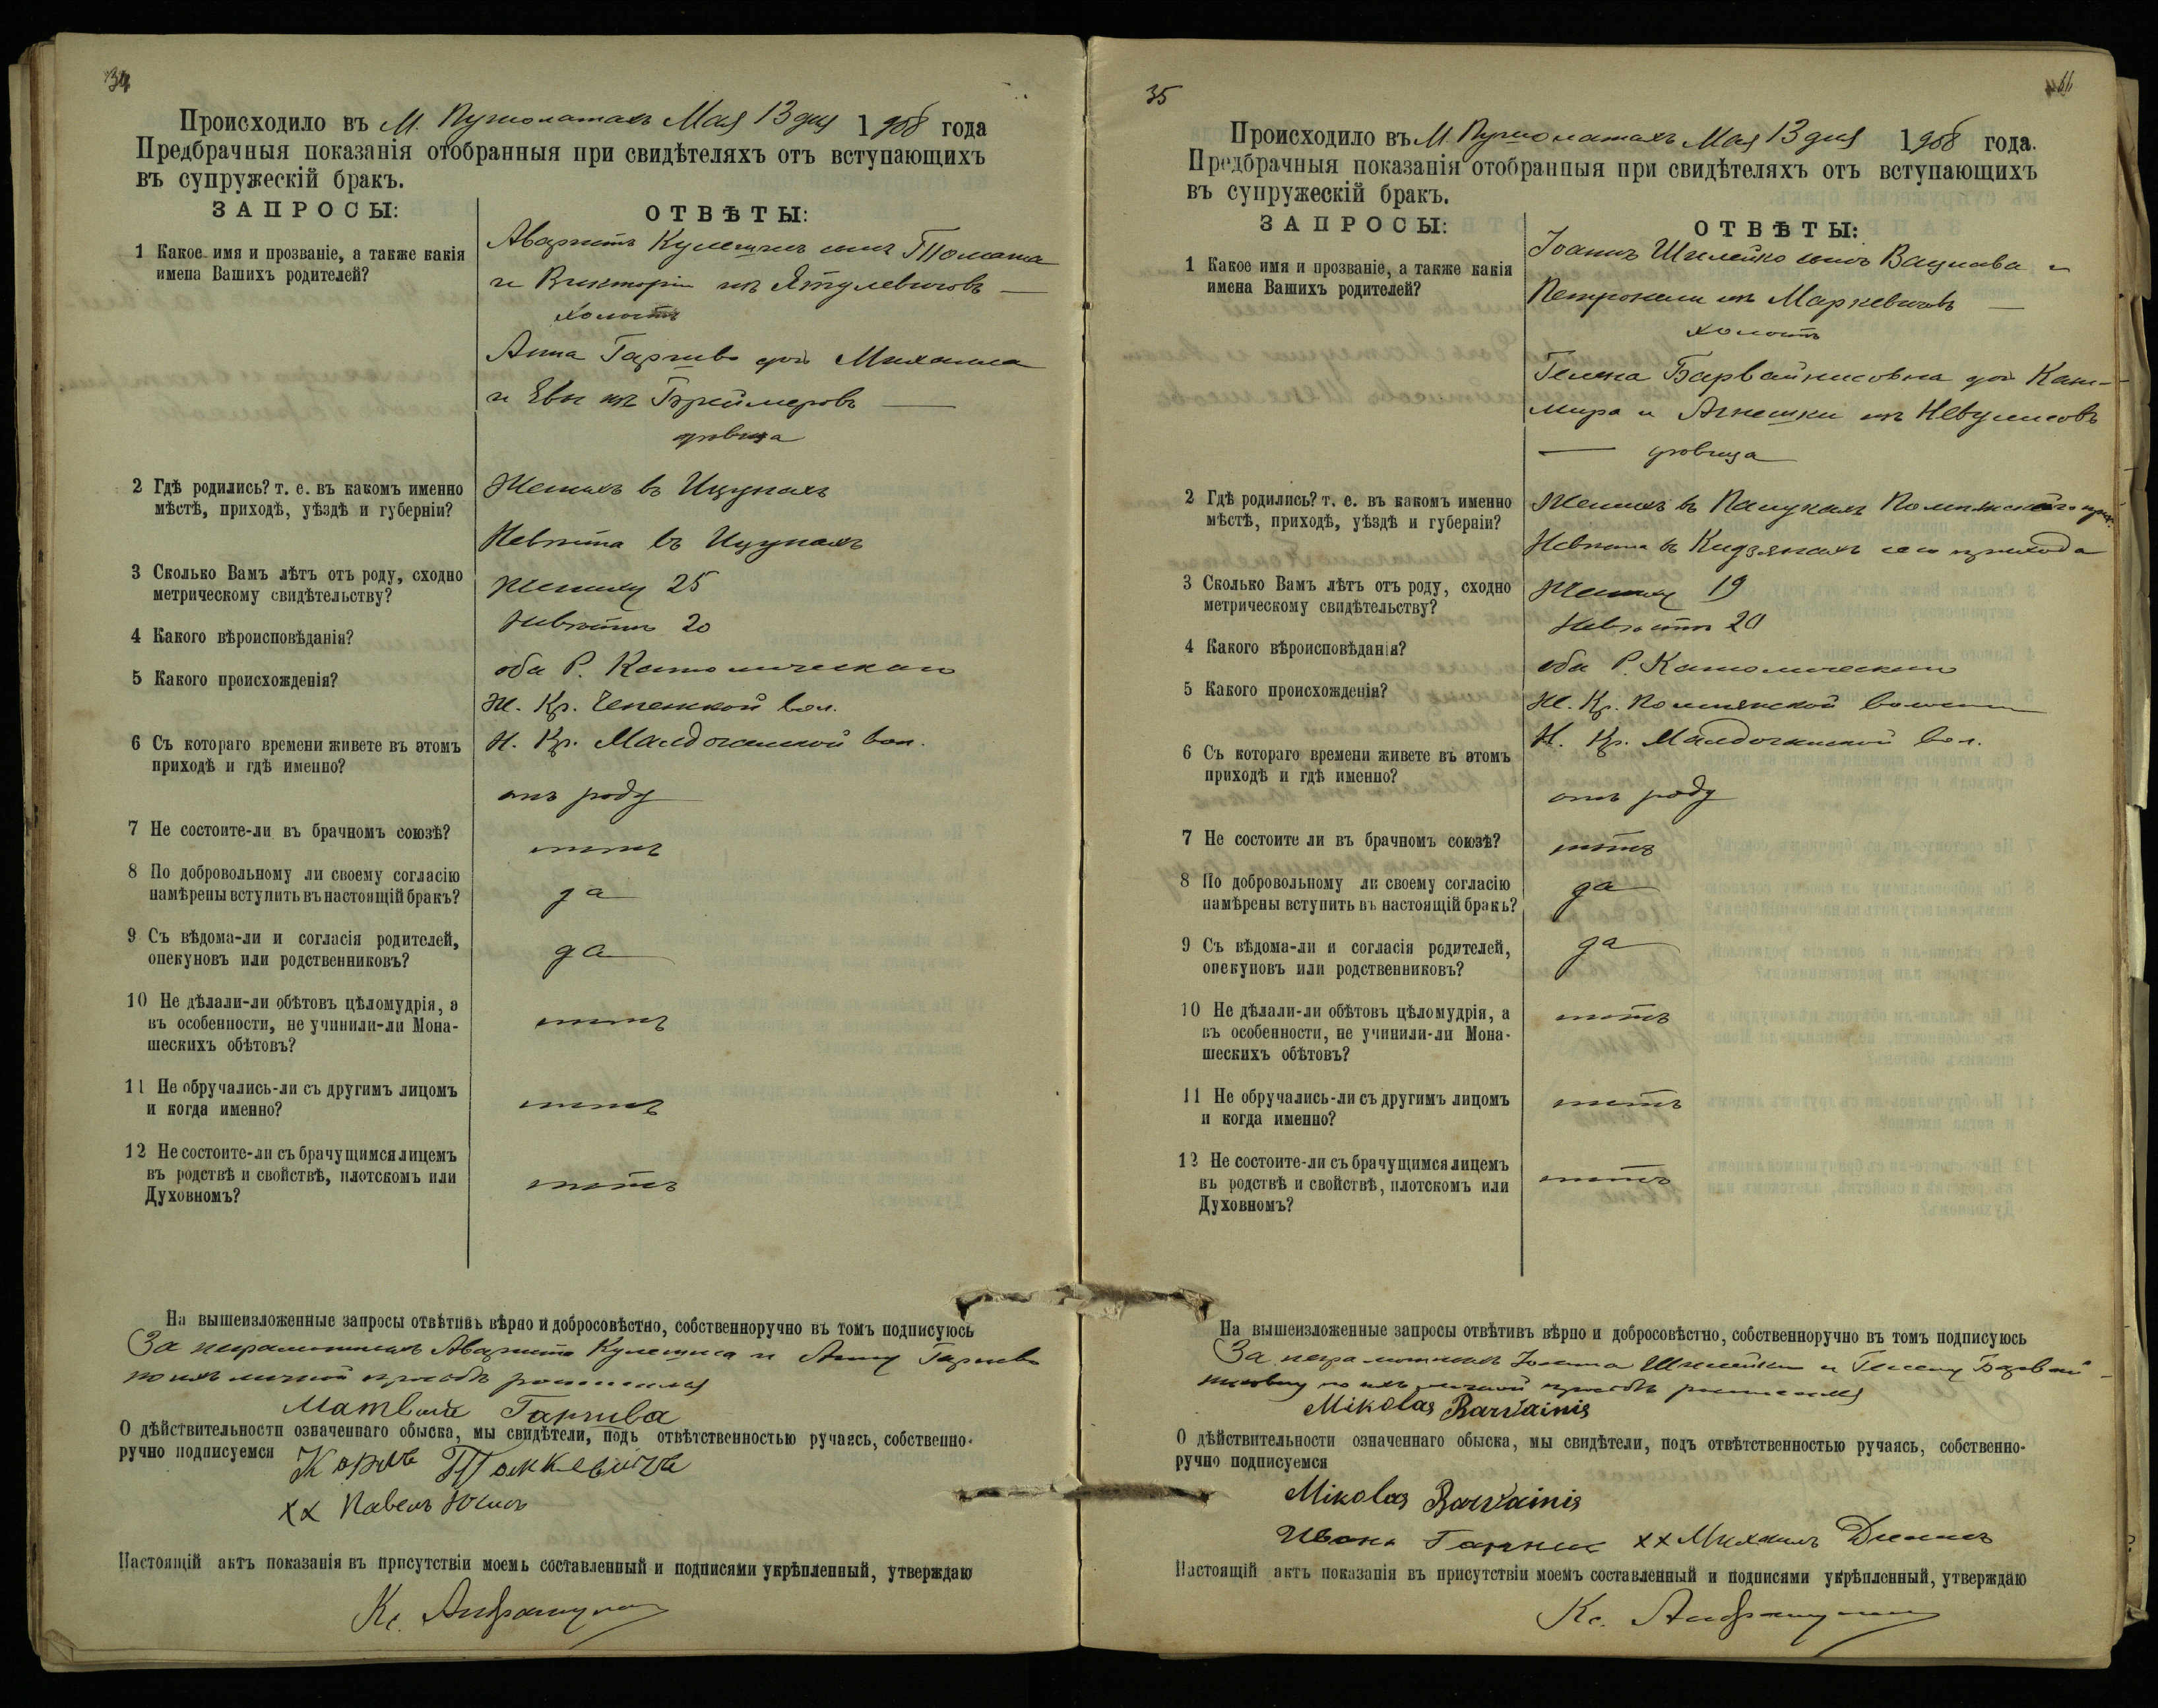 34
Происходило въ М. Пушолатахъ Мая 13 дня 1908 года
Предбрачныя показанія отобранныя при свидѣтеляхъ отъ вступающихъ
въ супружескій бракъ.
ЗАПРОСЫ:
ОТВѢТЫ:
1 Какое имя и прозваніе, а также какія
имена Вашихъ родителей?
Кулешисъ сынъ Томаша
и Викторіи изъ
холостъ
Анна дочь Михаила
и Евы изъ
дѣвица
2 Гдѣ родились? т. е. въ какомъ именно
мѣстѣ, приходѣ, уѣздѣ и губерніи?
Женихъ въ Ицунахъ
Невѣста въ Ицунахъ
3 Сколько Вамъ лѣтъ отъ роду, сходно
метрическому свидѣтельству?
Жениху 25
Невѣстѣ 20
4 Какого вѣроисповѣданія?
оба Р. Католическаго
5 Какого происхожденія?
Ж. Кр. вол.
Н. Кр. вол.
6 Съ котораго времени живете въ этомъ
приходѣ и гдѣ именно?
отъ роду
7 Не состоите-ли въ брачномъ союзѣ?
нѣтъ
8 По добровольному ли своему согласію
намѣрены вступить въ настоящій бракъ?
да
9 Съ вѣдома-ли и согласія родителей,
опекуновъ или родственниковъ?
да
10 Не дѣлали-ли обѣтовъ цѣломудрія, а
въ особенности, не учинили-ли Мона-
шескихъ обѣтовъ?
нѣтъ
11 Не обручались-ли съ другимъ лицомъ
и когда именно?
нѣтъ
12 Не состоите-ли съ брачущимся лицемъ
въ родствѣ и свойствѣ, плотскомъ или
Духовномъ?
нѣтъ
На вышеизложенные запросы отвѣтивъ вѣрно и добросовѣстно, собственноручно въ томъ подписуюсь
За неграмотныхъ Кулешиса и Анну
по ихъ личной просьбѣ росписался
О дѣйствительности означеннаго обыска, мы свидѣтели, подъ отвѣтственностью ручаясь, собственно-
ручно подписуемся
хх Павелъ
Настоящій актъ показанія въ присутствіи моемъ составленный и подписями укрѣпленный, утверждаю
Кс.
35
Происходило въ М. Пушолатахъ Мая 13 дня 1908 года.
Предбрачныя показанія отобранныя при свидѣтеляхъ отъ вступающихъ
въ супружескій бракъ.
ЗАПРОСЫ:
ОТВѢТЫ:
1 Какое имя и прозваніе, а также какія
имена Вашихъ родителей?
Іоаннъ Шилейко сынъ Вацлава и
Петронели изъ Маркевичовъ
холостъ
Гелена Барвайнисовна дочь Кази-
мира и Агнешки изъ
дѣвица
2 Гдѣ родились? т. е. въ какомъ именно
мѣстѣ, приходѣ, уѣздѣ и губерніи?
Женихъ въ
Невѣста въ сего прихода
3 Сколько Вамъ лѣтъ отъ роду, сходно
метрическому свидѣтельству?
Жениху 19
Невѣстѣ 20
4 Какого вѣроисповѣданія?
оба Р. Католическаго
5 Какого происхожденія?
Ж. Кр. волости
Н. Кр. вол.
6 Съ котораго времени живете въ этомъ
приходѣ и гдѣ именно?
отъ роду
7 Не состоите ли въ брачномъ союзѣ?
нѣтъ
8 По добровольному ли своему согласію
намѣрены вступить въ настоящій бракъ?
да
9 Съ вѣдома-ли и согласія родителей,
опекуновъ или родственниковъ?
да
10 Не дѣлали-ли обѣтовъ цѣломудрія, а
въ особенности, не учинили-ли Мона-
шескихъ обѣтовъ?
нѣтъ
11 Не обручались-ли съ другимъ лицомъ
и когда именно?
нѣтъ
12 Не состоите-ли съ брачущимся лицемъ
въ родствѣ и свойствѣ, плотскомъ или
Духовномъ?
нѣтъ
На вышеизложенные запросы отвѣтивъ вѣрно и добросовѣстно, собственноручно въ томъ подписуюсь
За неграмотныхъ Іоанна Шилейки и Гелену Барвай-
нисовну по ихъ личной просьбѣ росписался
Mikolas Barvainis
О дѣйствительности означеннаго обыска, мы свидѣтели, подъ отвѣтственностью ручаясь, собственно-
ручно подписуемся
Mikolas Barvainis
хх Михаилъ
Настоящій актъ показанія въ присутствіи моемъ составленный и подписями укрѣпленный, утверждаю
Кс.